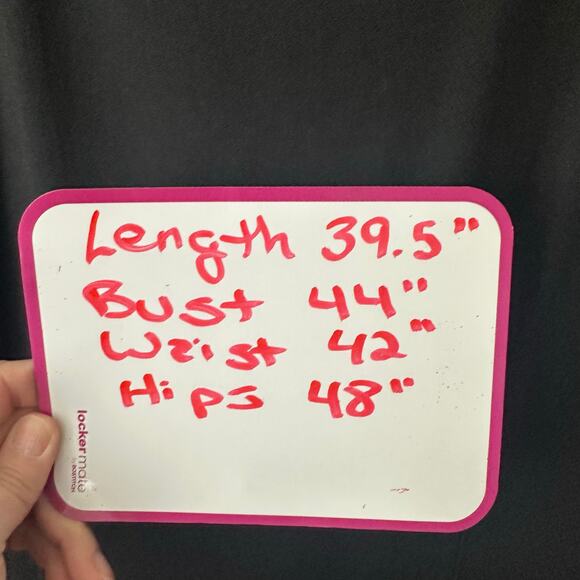 Length 39.5"
Bust 44"
Waist 42"
Hips 48"
lockermate
by BOSTITCH